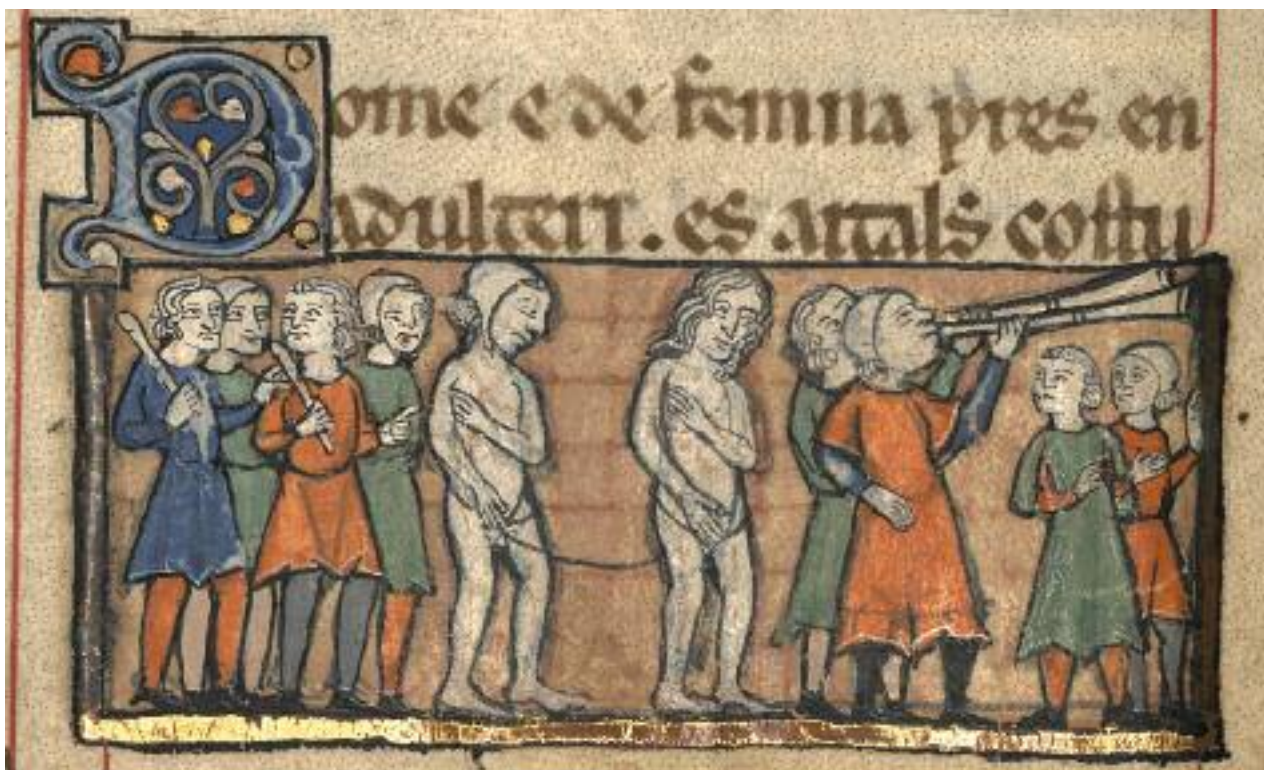 Dome e de femna pres en
adulteri . es aitals costu